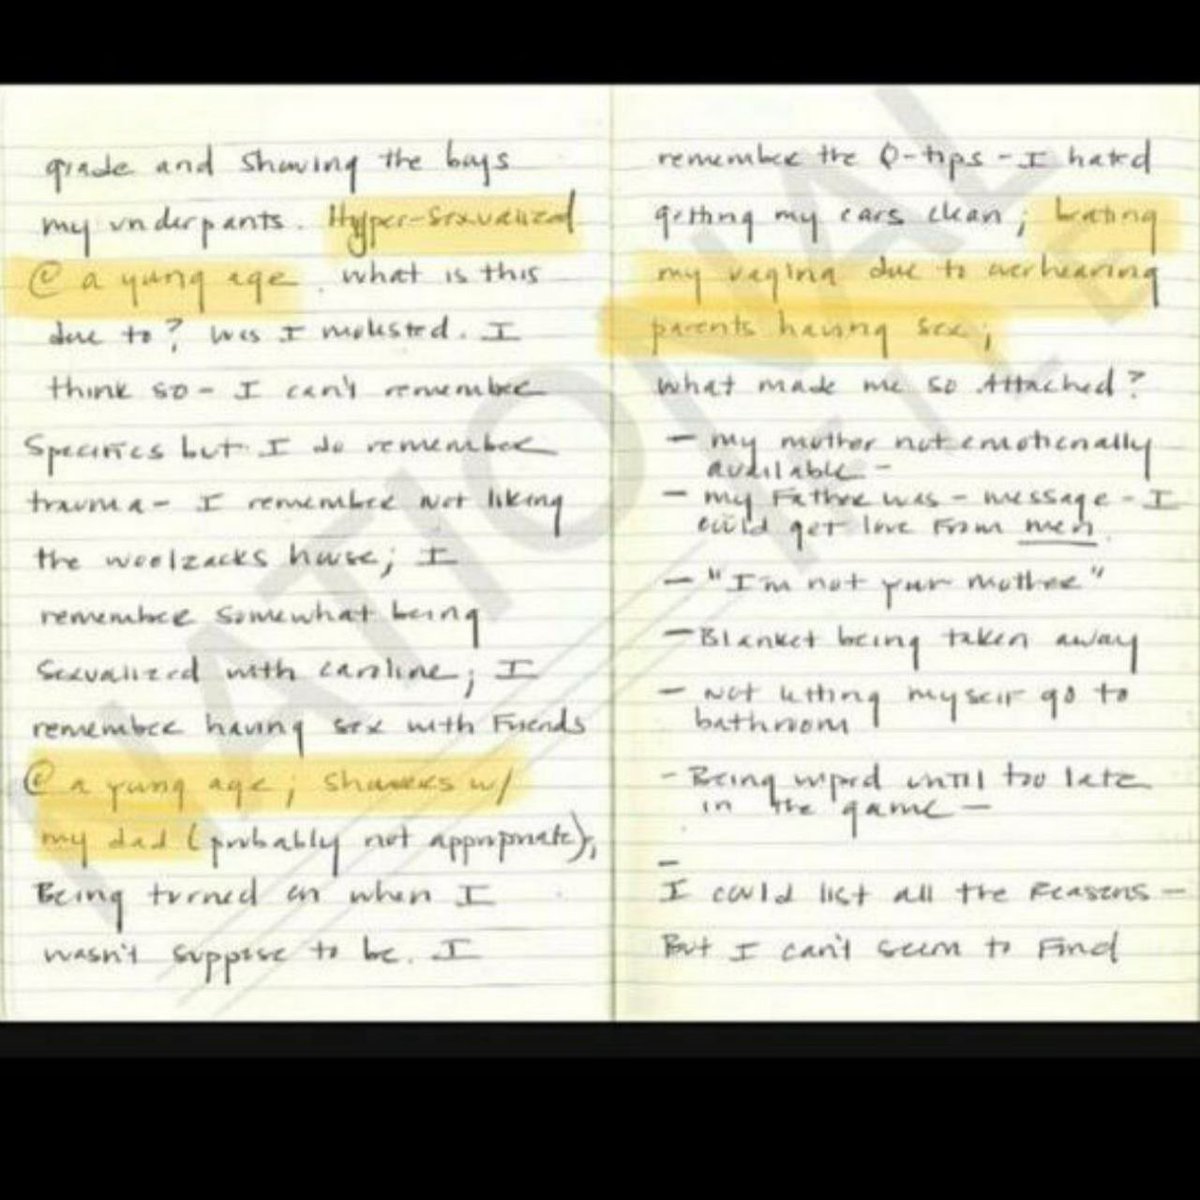 grade and showing the boys
my underpants. Hyper-sexualized
@ a young age. what is this
due to? Was I molested. I
think so - I can't remember
specifics but I do remember
trauma - I remember not liking
the woolzacks house; I
remember somewhat being
sexualized with caroline; I
remember having sex with Friends
@ a young age; showers w/
my dad (probably not appropriate),
Being turned on when I
wasn't suppose to be. I
remember the Q-tips - I hated
getting my ears clean;
my vagina due to overhearing
parents having sex;
What made me so Attached?
- my mother not emotionally
available -
- my Father was - message - I
could get love From men.
- "I'm not your mother"
- Blanket being taken away
- Not letting myself go to
bathroom
- Being wiped until too late
in the game -
-
I could list all the Reasons -
But I can't seem to Find
NATIONAL
FILE